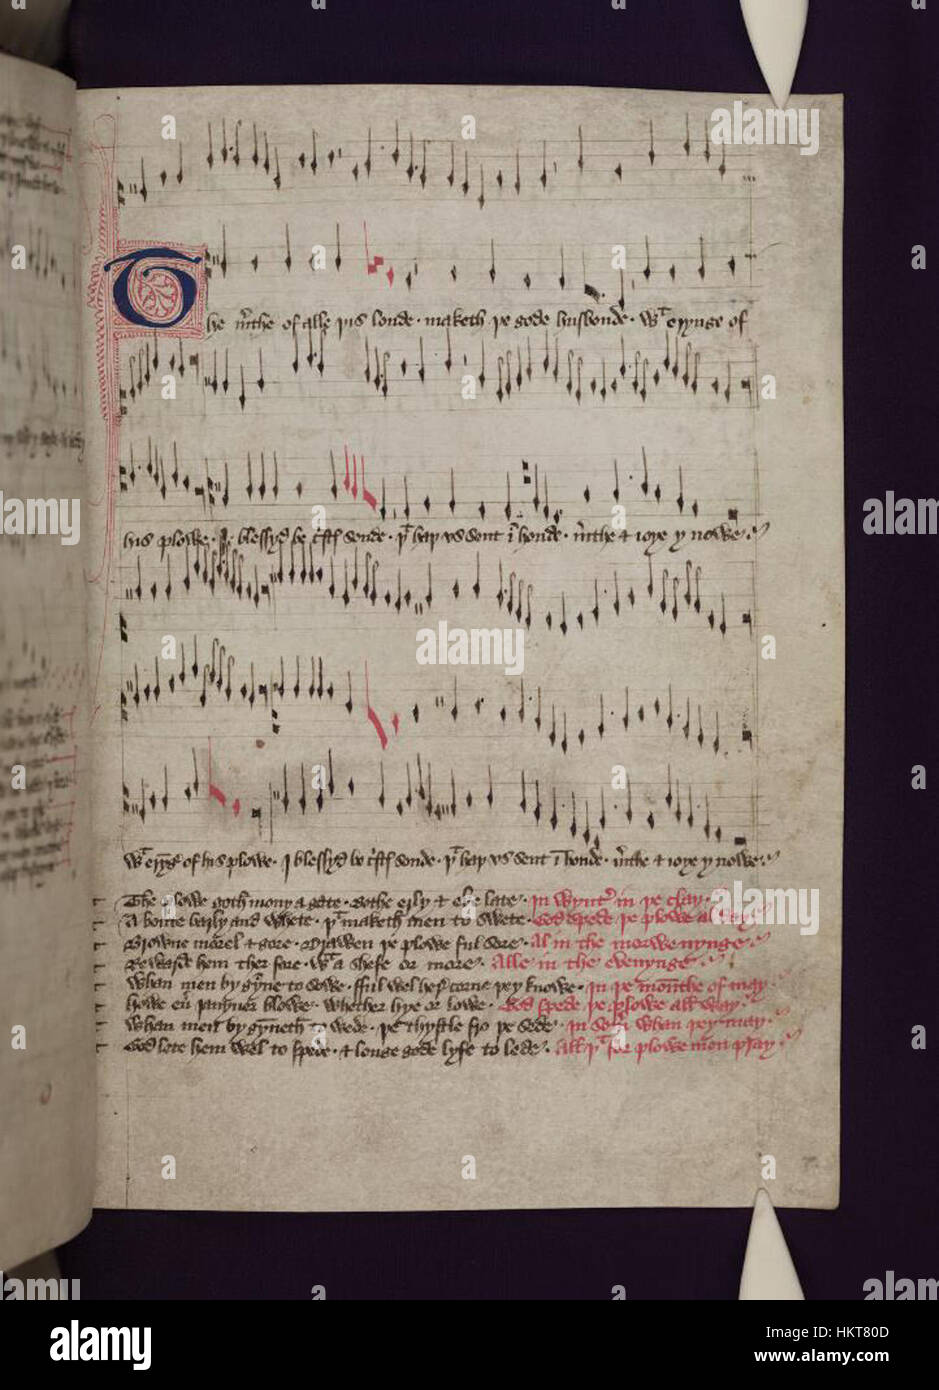 The m̄the of alle þis londe · maketh þe gode husbonde · wᵗ eryynge of
his plowe · I blessyd be cͬstꝭ sonde · þᵗ hay vs sent ī honde · m̄the & ioye y nowe
wᵗ of his plowe · I blessyd be cͬstꝭ sonde · þᵗ hay vs sent ī honde · m̄the & ioye y nowe
The plowe goth mony a gate · bothe erly & eke late · in wynter in þe clay ·
A boute barly and whete · þᵗ maketh men to swete · God spede þe plowe al day
Browne morel & gore · Drawen þe plowe ful sore · Al in the morwenynge
Rewarde hem ther fore · wᵗ a shefe or more · Alle in the evenynge
Whan men by gȳne to sowe · fful wel her corne þey knowe · in þe monthe of may ·
Howe eu̾ Janyuer blowe · whether hye or lowe · God spede þe plowe all way ·
Whan men by gyneth to wede · þe thystle fro þe sede · in som̄ whan þey may ·
God lete hem wel to spede · & longe gode lyfe to lede · All þᵗ for plowe men pray
alamy
alamy
alamy
alamy
alamy
a
Image ID: HKT80D
www.alamy.com